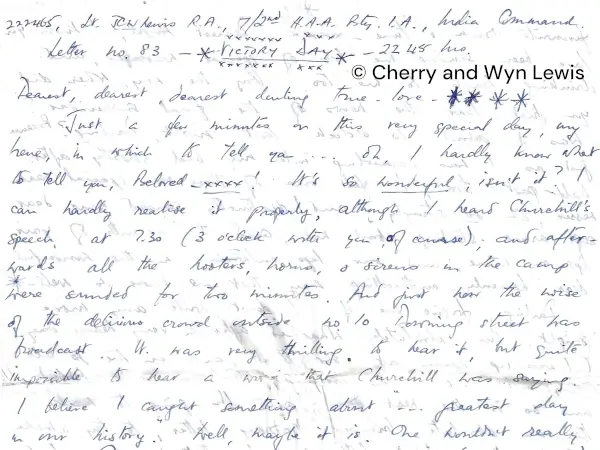 222465, Lt. JCW Lewis R.A., 7/2nd H.A.A. Rty. I.A., India Command.
Letter no. 83 - * VICTORY DAY * - 2245 hrs.
© Cherry and Wyn Lewis
Dearest, dearest, dearest darling true-love - * * * *
Just a few minutes on this very special day, my
here, in which to tell you .... oh, I hardly know what
to tell you, Beloved - xxxx! It's so wonderful, isn't it? I
can hardly realise it properly, although I heard Churchill's
speech at 7.30 (3 o'clock with you of course), and after-
wards all the hooters, horns, & sirens in the camp
were sounded for two minutes. And just now the noise
of the delirious crowd outside no. 10 Downing street was
broadcast. It was very thrilling to hear it, but quite
impossible to hear a word that Churchill was saying.
I believe I caught something about "... greatest day
in our history." Well, maybe it is. One wouldn't really